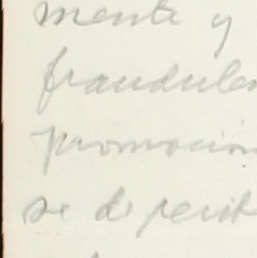 mente y
fraudulen
promoción
se de perib